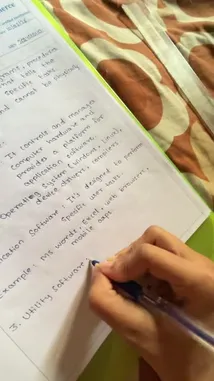 procedure
that tells the
specific task.
and cannot be physically
It controls and manages
computer hardware and
provides a platform for
application software.
Operating system (windows, Linux),
device drivers, compilers
Software: It's designed to perform
specific user tasks.
Example: Ms word, Excel, web browsers,
mobile apps
3. Utility Software: